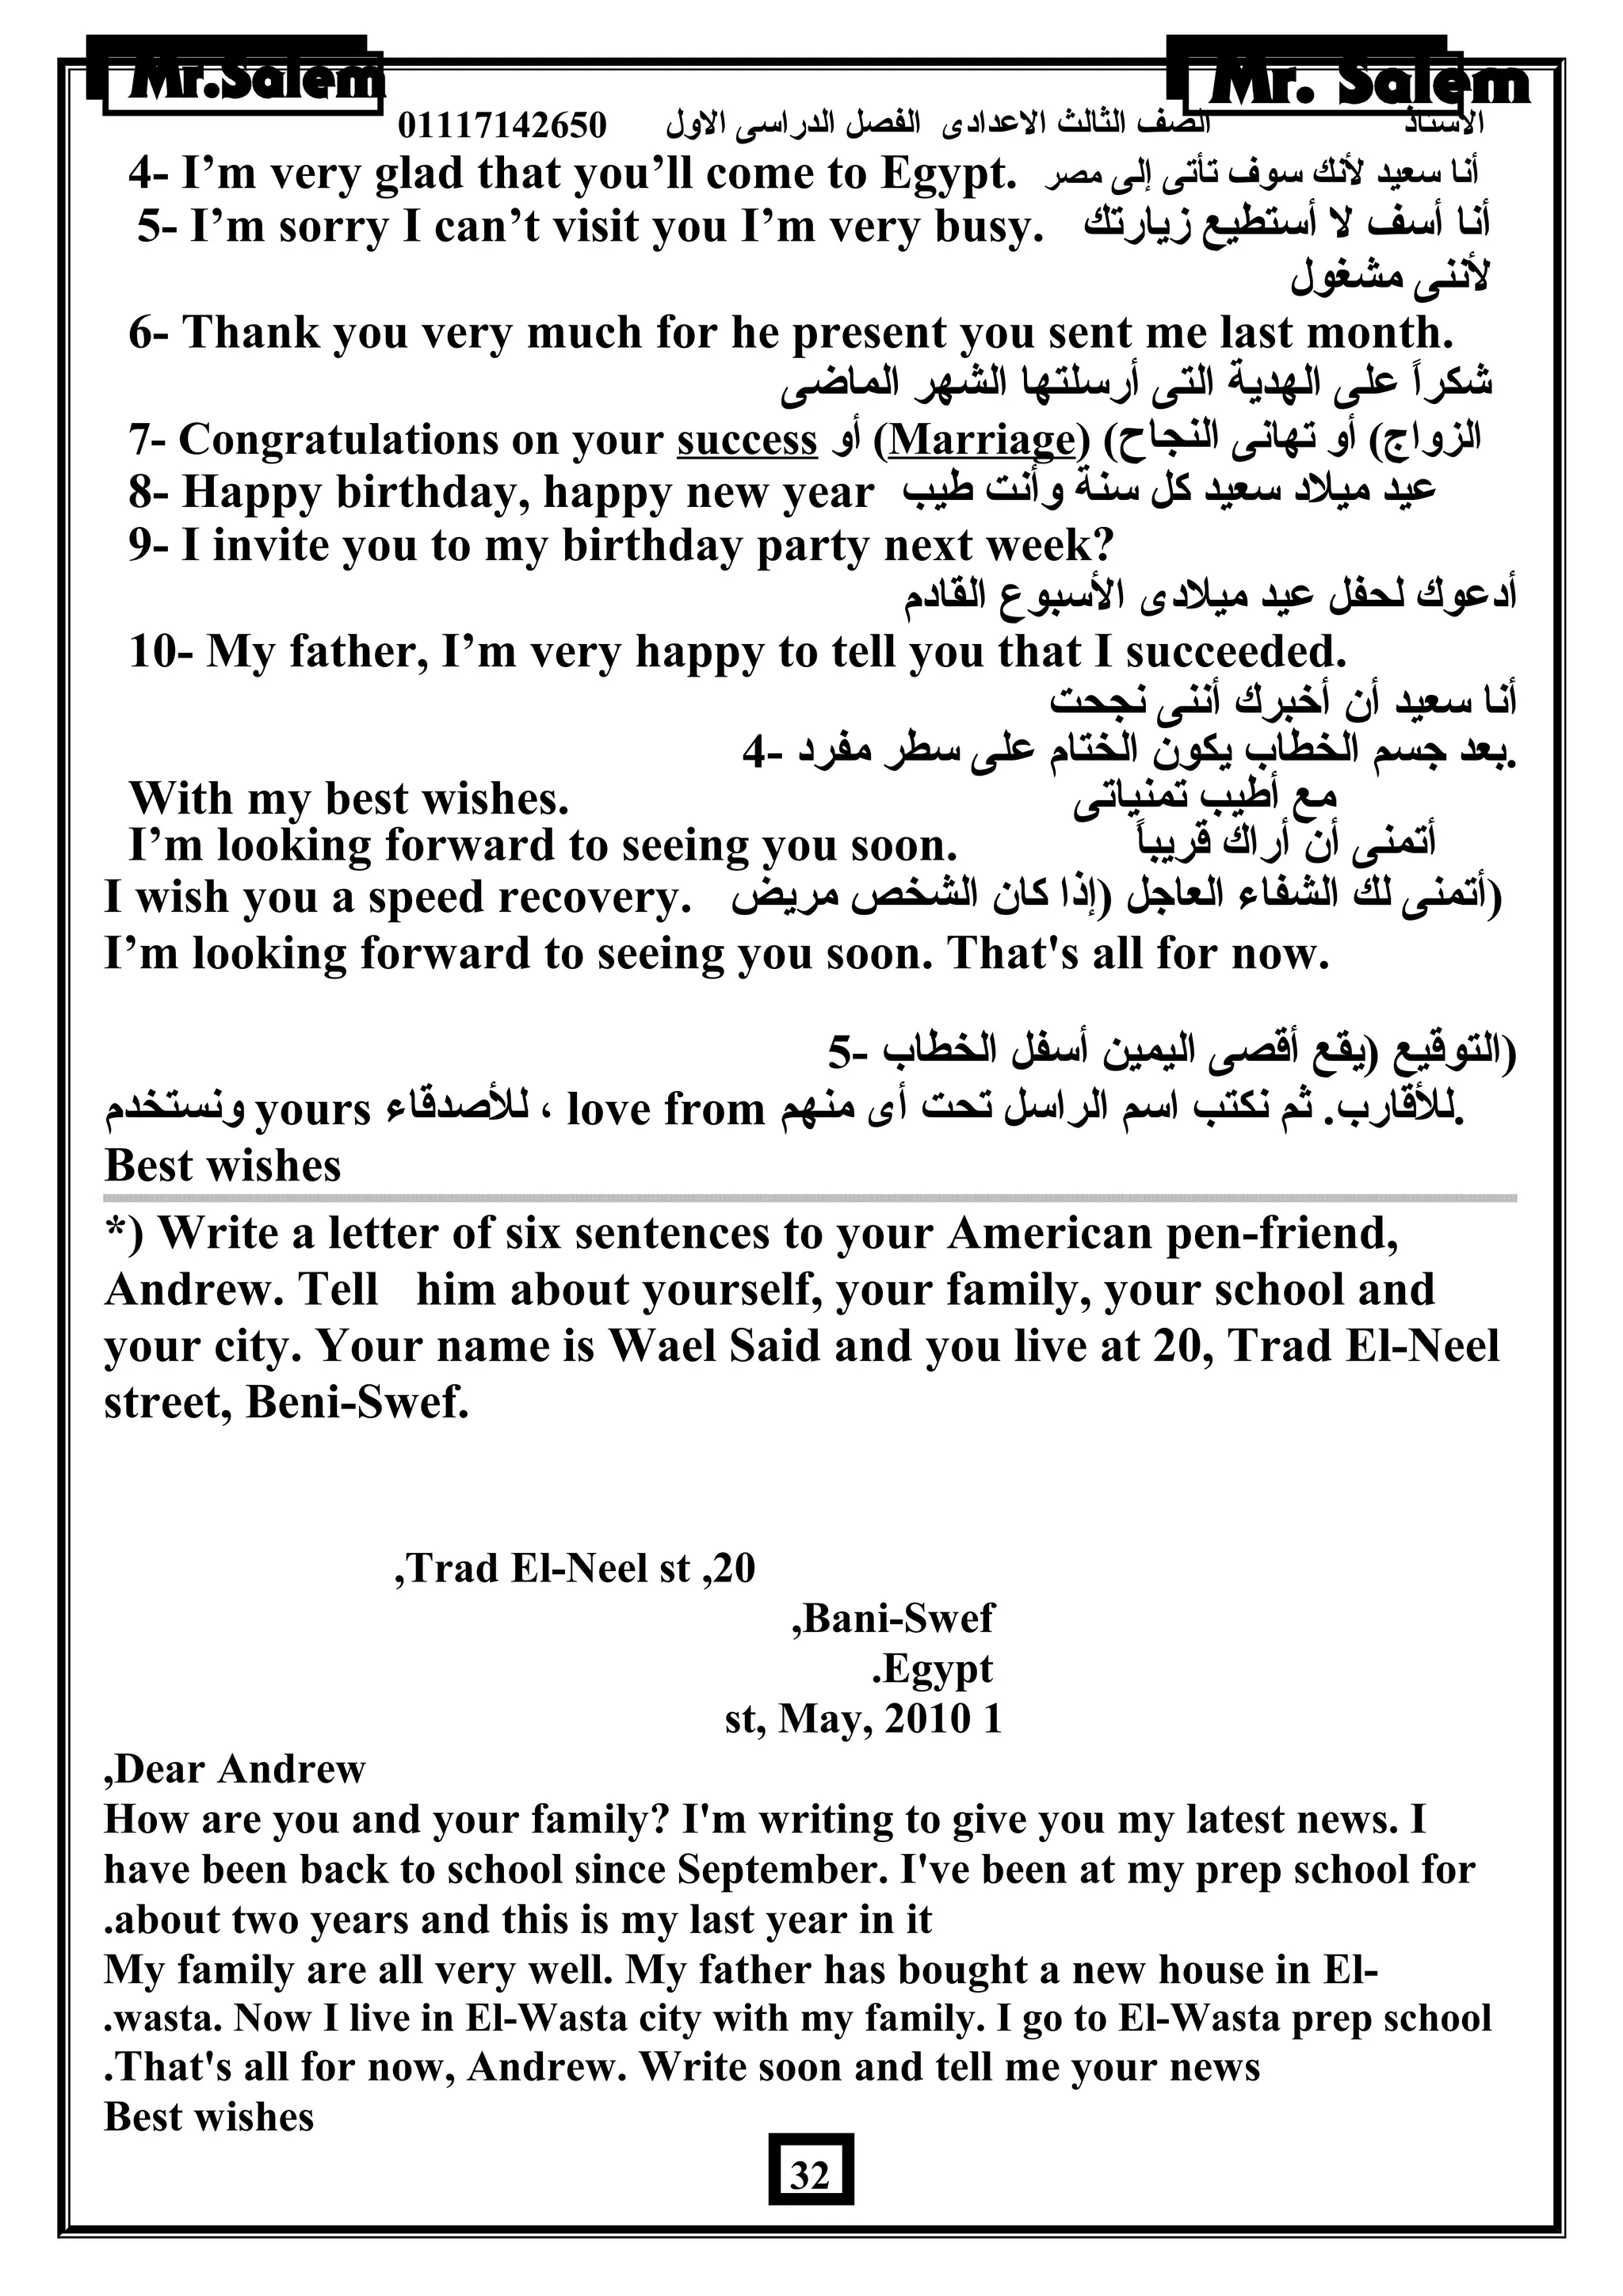 Mr.Salem
Mr. Salem
الاستاذ الصف الثالث الاعدادى الفصل الدراسى الاول 01117142650
4- I’m very glad that you’ll come to Egypt. أنا سعيد لأنك سوف تأتى إلى مصر
5- I’m sorry I can’t visit you I’m very busy. أنا أسف لا أستطيع زيارتك
لأننى مشغول
6- Thank you very much for he present you sent me last month.
شكراً على الهدية التى أرسلتها الشهر الماضى
7- Congratulations on your success أو (Marriage) (الزواج) أو تهانى النجاح
8- Happy birthday, happy new year عيد ميلاد سعيد كل سنة وأنت طيب
9- I invite you to my birthday party next week?
أدعوك لحفل عيد ميلادى الأسبوع القادم
10- My father, I’m very happy to tell you that I succeeded.
أنا سعيد أن أخبرك أننى نجحت
4- بعد جسم الخطاب يكون الختام على سطر مفرد.
With my best wishes. مع أطيب تمنياتى
I’m looking forward to seeing you soon. أتمنى أن أراك قريباً
I wish you a speed recovery. أتمنى لك الشفاء العاجل (إذا كان الشخص مريض)
I’m looking forward to seeing you soon. That's all for now.
5- التوقيع (يقع أقصى اليمين أسفل الخطاب)
ونستخدم yours للأصدقاء ، love from للأقارب. ثم نكتب اسم الراسل تحت أى منهم.
Best wishes
*) Write a letter of six sentences to your American pen-friend,
Andrew. Tell him about yourself, your family, your school and
your city. Your name is Wael Said and you live at 20, Trad El-Neel
street, Beni-Swef.
,Trad El-Neel st ,20
,Bani-Swef
.Egypt
st, May, 2010 1
,Dear Andrew
How are you and your family? I'm writing to give you my latest news. I
have been back to school since September. I've been at my prep school for
.about two years and this is my last year in it
My family are all very well. My father has bought a new house in El-
.wasta. Now I live in El-Wasta city with my family. I go to El-Wasta prep school
.That's all for now, Andrew. Write soon and tell me your news
Best wishes
32